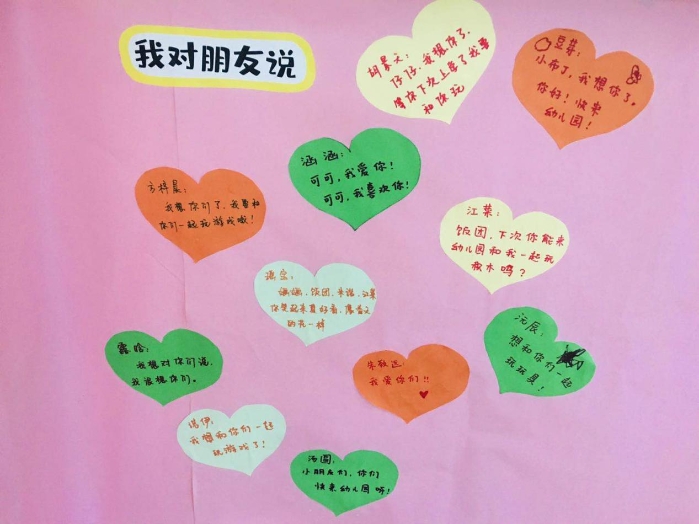 我对朋友说
仔仔,我想你了,
等你下次上学了我要
和你玩
豆芽:
小布丁,我想你了。
你好!快来
幼儿园!
涵涵:
可可,我爱你!
可可,我喜欢你!
方梓晨:
我想你们了,我要和
你们一起玩游戏哦!
江莱:
饭团,下次你能来
幼儿园和我一起玩
积木吗?
你笑起来真好看,像春天
的花一样
露晗:
我想对你们说,
我很想你们。
朱教运:
我爱你们!!
沅辰:
想和你们一起
玩玩具!
诺伊:
我想和你们一起
玩游戏了!
汤圆:
小朋友们,你们
快来幼儿园呀!